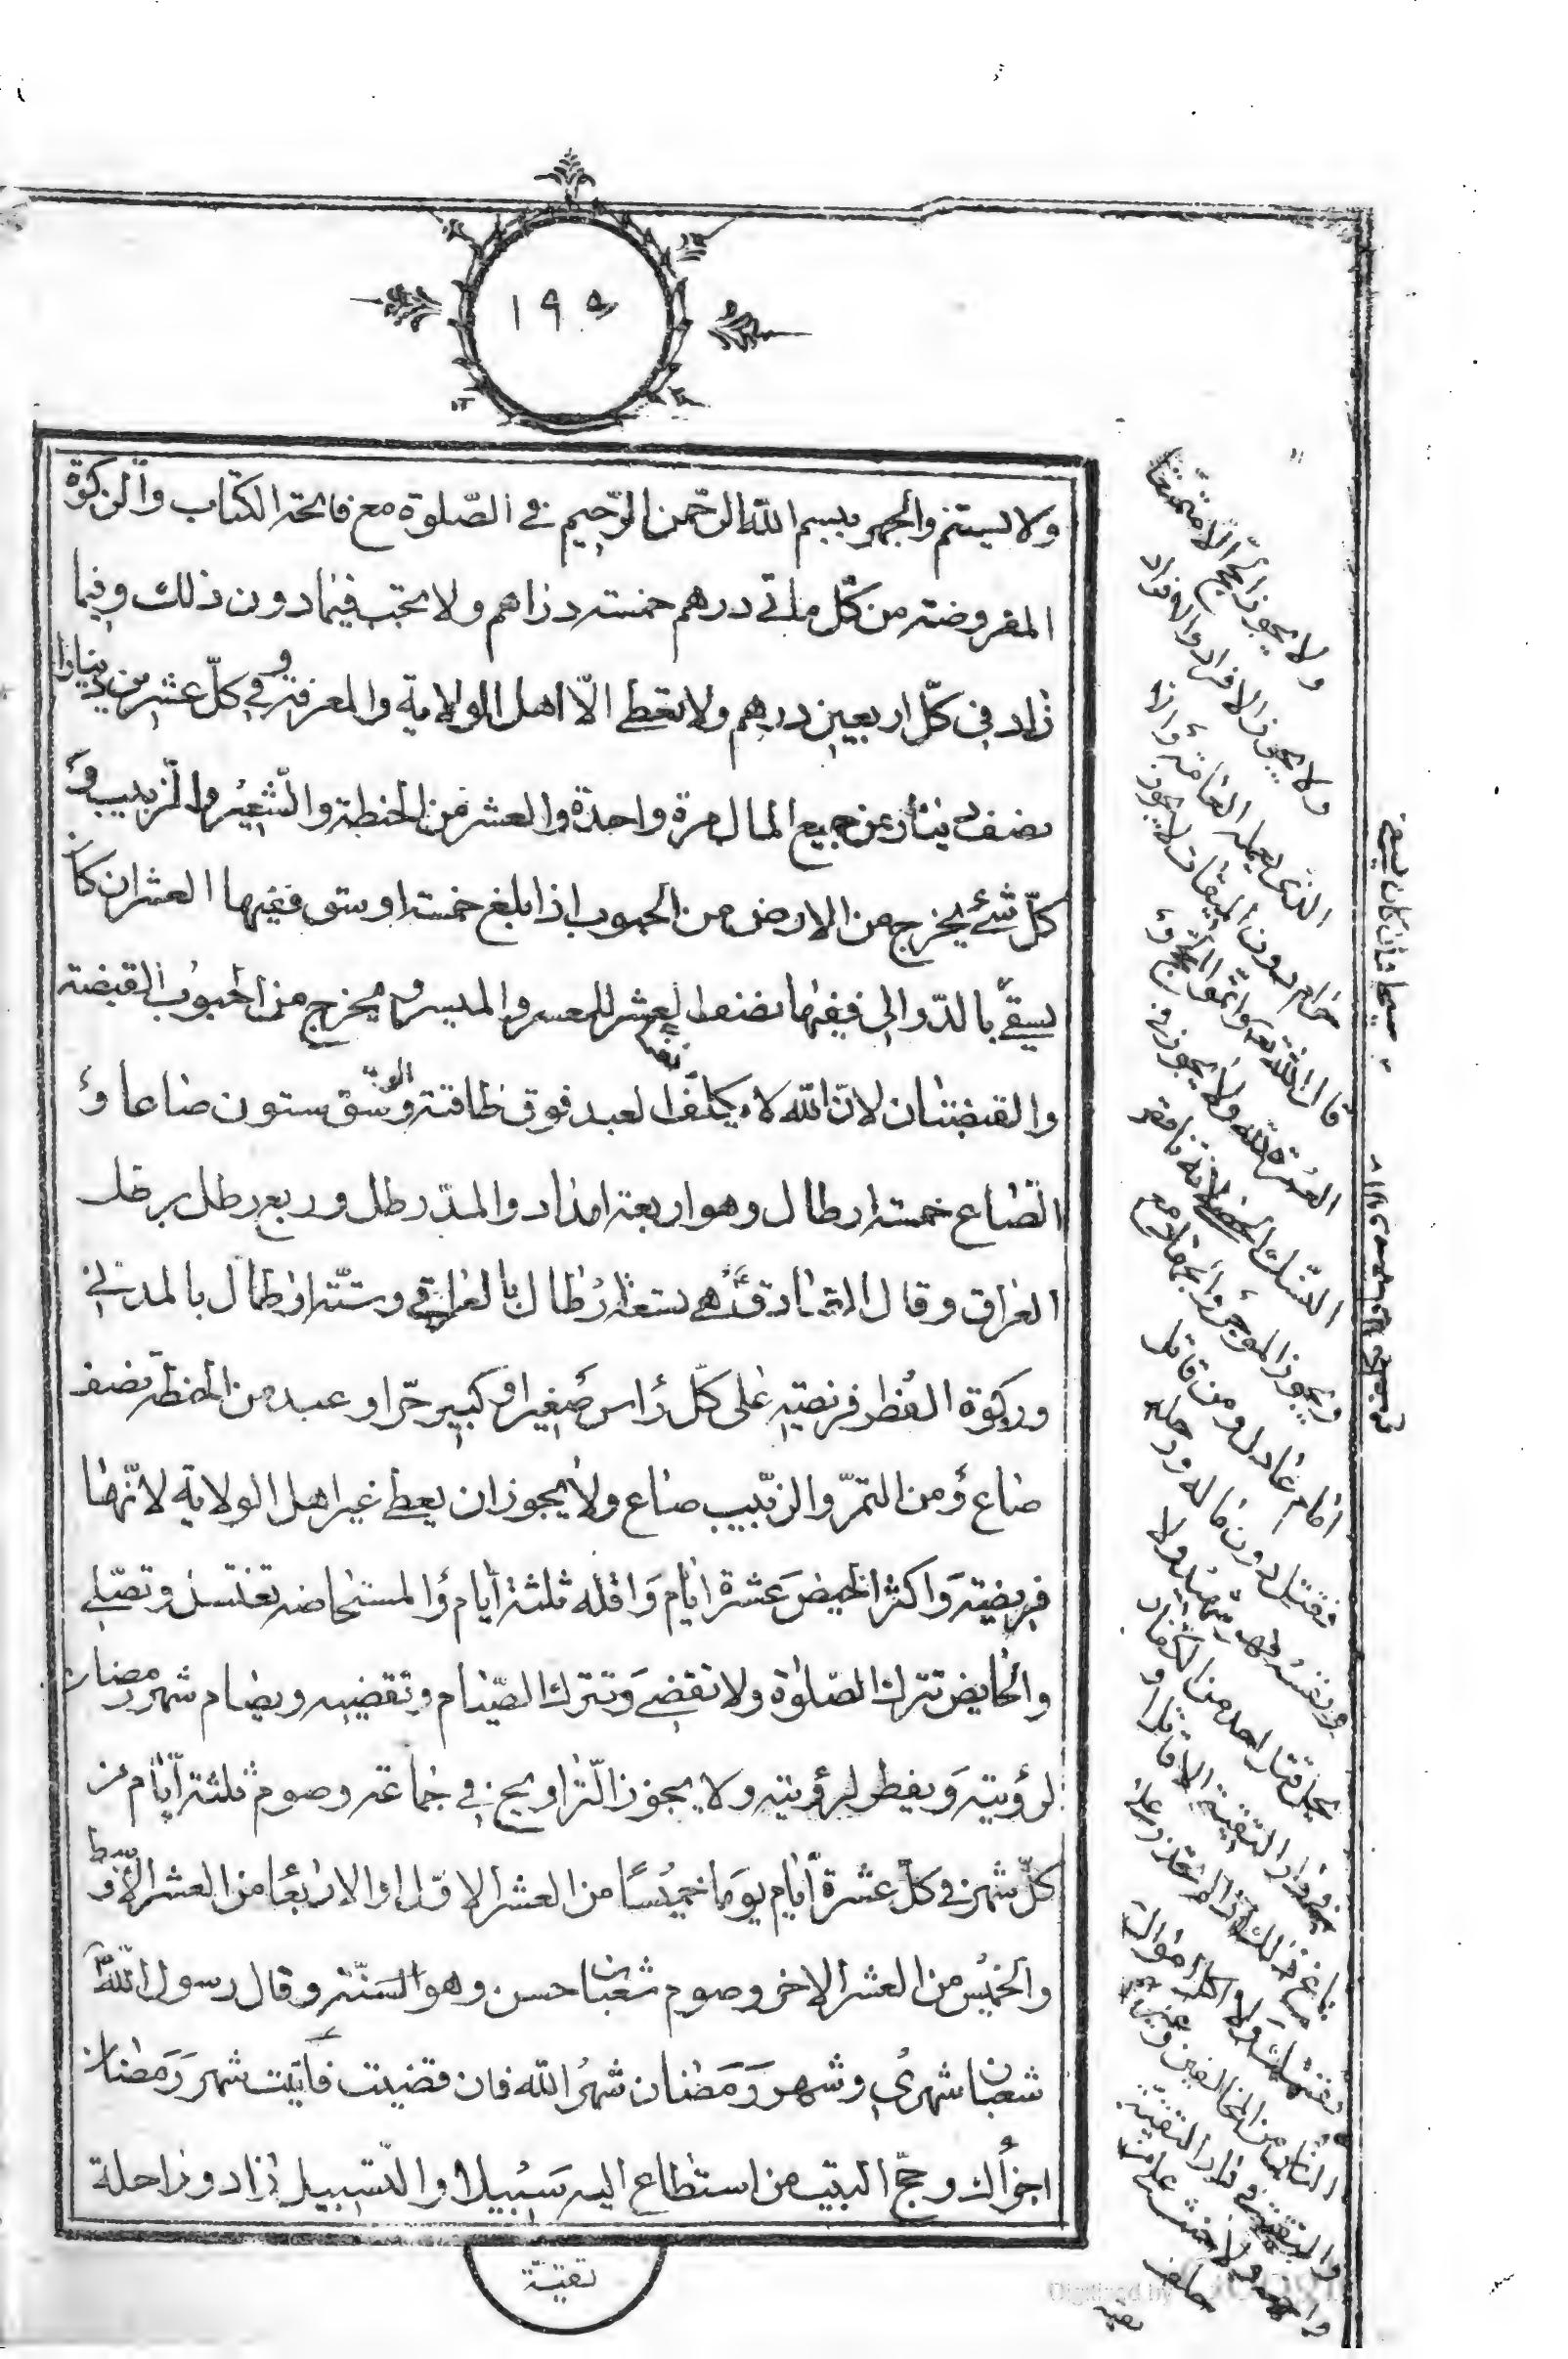 ١٩٥
ولا يستتم والجهر ببسم الله الرحمن الرحيم في الصلوة مع فاتحة الكتاب والزكوة
المفروضة من كل مأتى درهم خمسة دراهم ولا تجب فيما دون ذلك وفيما
زاد في كل اربعين درهم ولا تعطى الا اهل الولاية والمعرفة وفي كل عشرين دينارا
نصف دينار عن جميع المال مرة واحدة والعشر من الحنطة والشعير والزبيب و
كل شئ يخرج من الارض من الحبوب اذا بلغ خمسة اوسق ففيها العشر ان كان
يسقى بالدوالى ففيها نصف العشر للمعسر والميسر ويخرج من الحبوب القبضة
والقبضتان لان الله لا يكلف العبد فوق طاقته والوسق ستون صاعا و
الصاع خمسة ارطال وهو اربعة امداد والمد رطل وربع رطل برطل
العراق وقال الصادق هي تسعة ارطال بالعراقي وستة ارطال بالمدني
وزكوة الفطر فريضة على كل راس صغير او كبير حر او عبد من الحنطة نصف
صاع ومن التمر والزبيب صاع ولا يجوز ان يعطى غير اهل الولاية لانها
فريضة واكثر الحيض عشرة ايام واقله ثلثة ايام والمستحاضة تغتسل وتصلي
والحايض تترك الصلوة ولا تقضي وتترك الصيام وتقضيه ويصام شهر رمضان
لرؤيته ويفطر لرؤيته ولا يجوز التراويح في جماعة وصوم ثلثة ايام من
كل شهر في كل عشرة ايام يوما خميسا من العشر الاول والاربعا من العشر الاوسط
والخميس من العشر الاخر وصوم شعبان حسن وهو السنة وقال رسول الله
شعبان شهري وشهر رمضان شهر الله فان قضيت فايت شهر رمضان
اجزأك وحج البيت من استطاع اليه سبيلا والسبيل زاد وراحلة
تقية
ولا يجوز الحج الا متمتعا
ولا يجوز الافراد والاقران
الذي يعمله العامة وان
دون الميقات لا يجوز
قال الله تع واتموا الحج و
العمرة لله ولا يجوز في
النسك الخصي لانه ناقص
ويجوز الموجؤ والجهاد مع
امام عادل ومن قاتل
فقتل دون ماله ورحله
ونفسه فهو شهيد ولا
يحل قتل احد من الكفار
في دار التقية الا قاتل او
باغ وذلك اذا لم تحذر على
نفسك ولا اكل اموال
الناس من المخالفين وغيرهم
والتقية في دار التقية